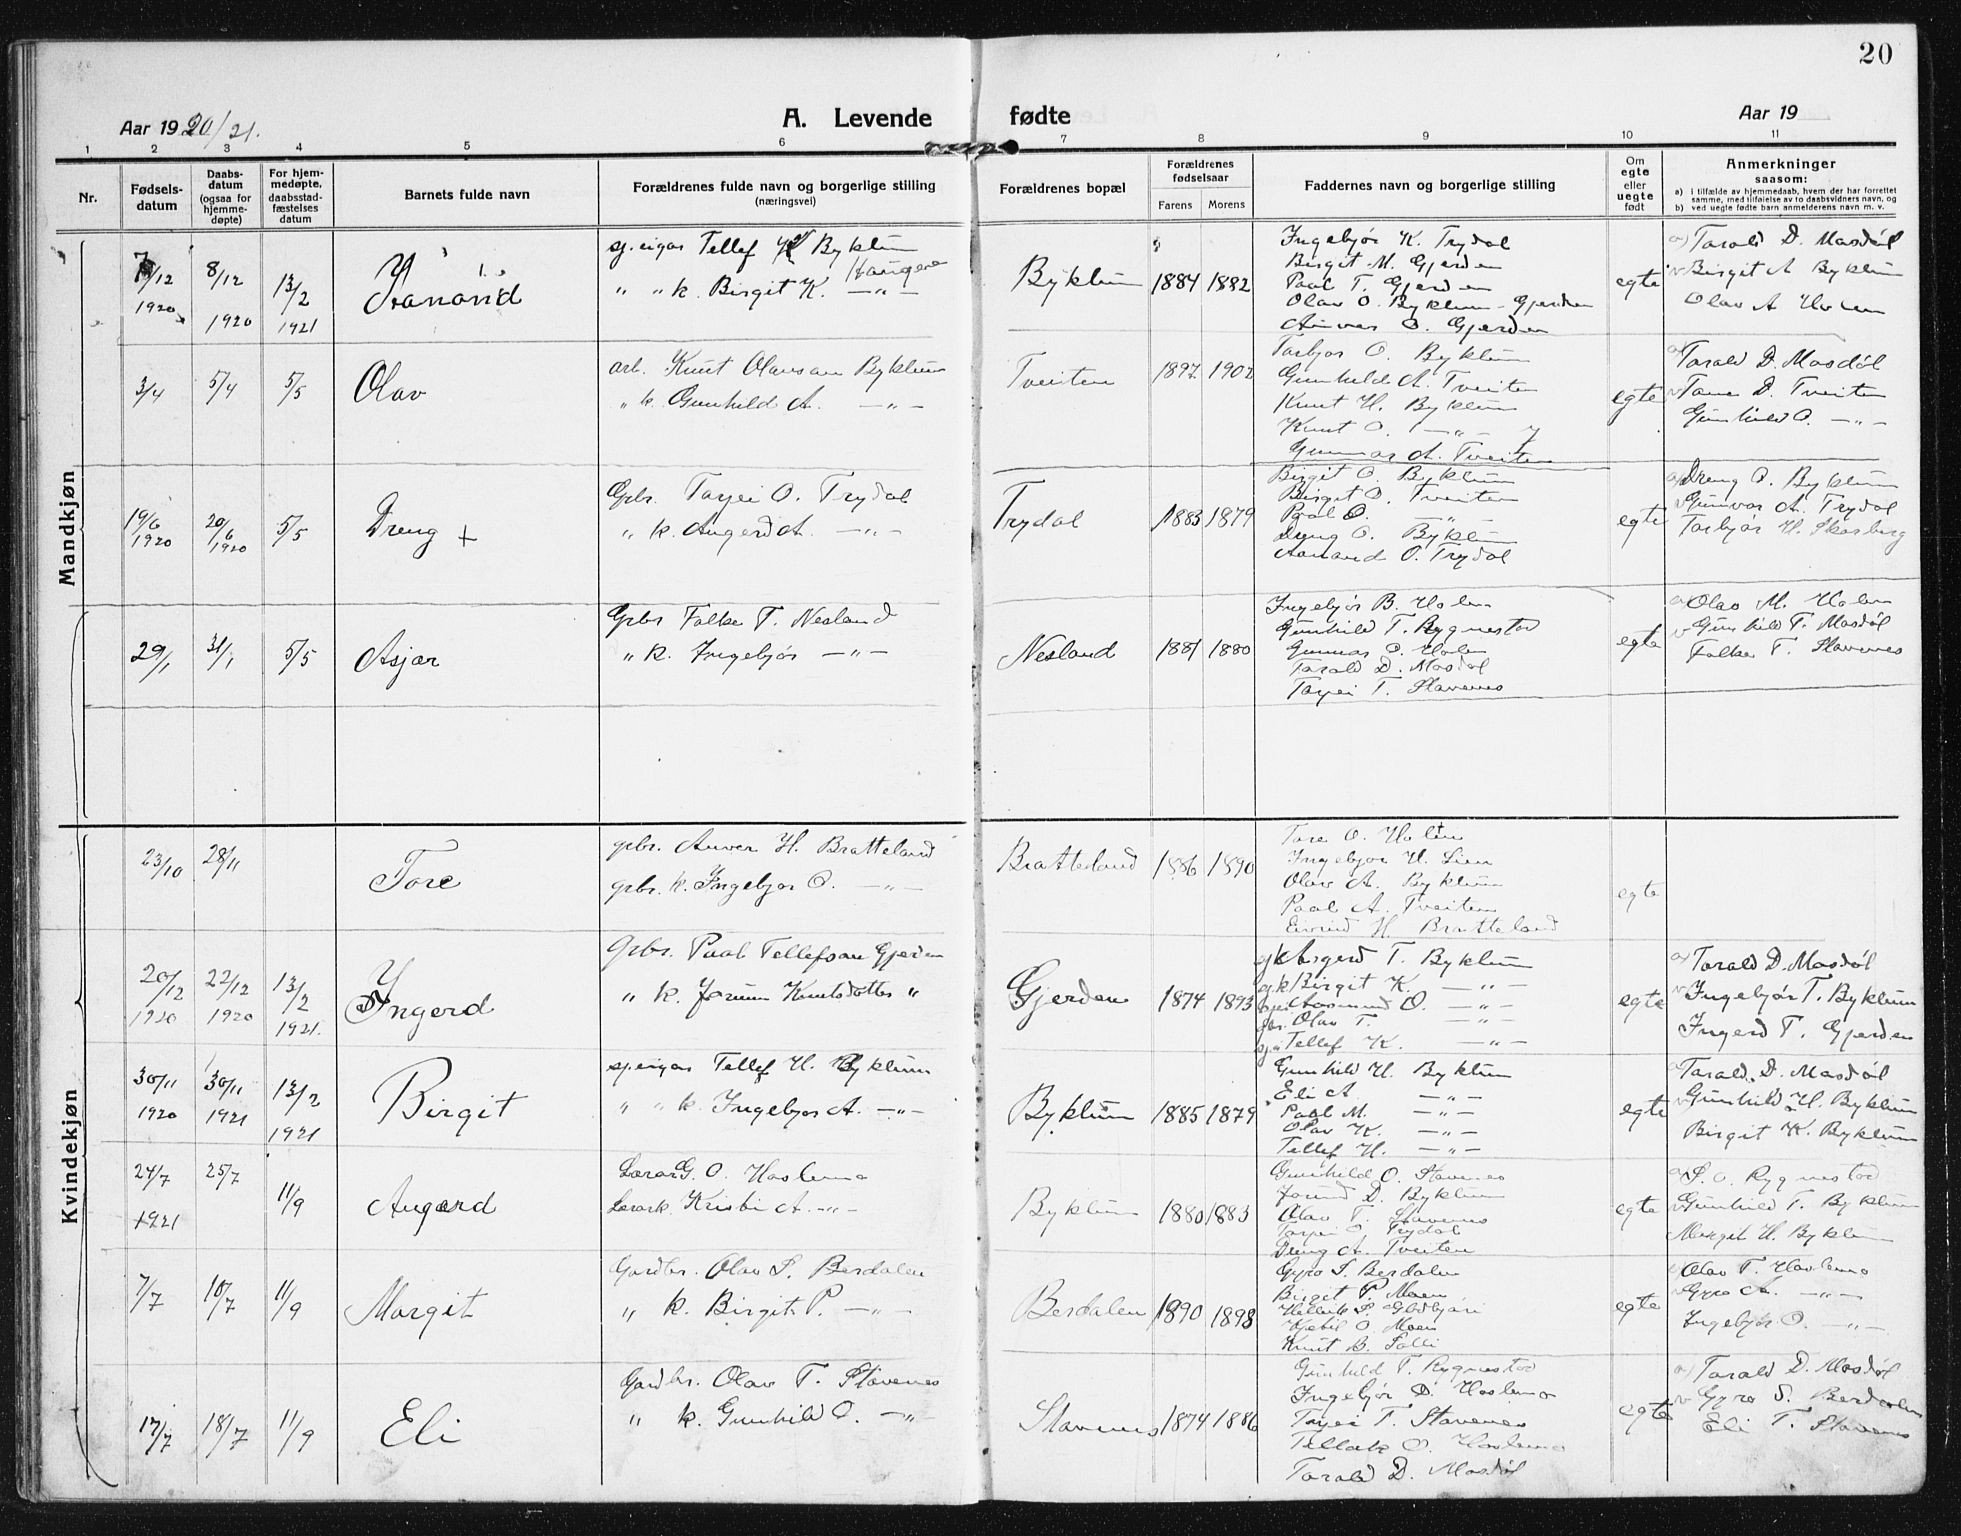 20
Aar 1920/21.
A. Levende fødte
Aar 19
1 2 3 4 5 6 7 8 9 10 11
Nr.
Fødselsdatum
Daabsdatum (ogsaa for hjemmedøpte)
For hjemmedøpte, daabsstadfæstelses datum
Barnets fulde navn
Forældrenes fulde navn og borgerlige stilling (næringsvei)
Forældrenes bopæl
Forældrenes fødselsaar
Farens
Morens
Faddernes navn og borgerlige stilling
Om egte eller uegte født
Anmerkninger saasom:
a) i tilfælde av hjemmedaab, hvem der har forrettet samme, med tilføielse av to daabsvidners navn, og
b) ved uegte fødte barn anmelderens navn m. v.
Mandkjøn
7/12 1920
8/12 1920
13/2 1921
Aanund
Tellef K. Byklum
" " k. Birgit K. —"—
Byklum
1884 1882
Ingebjør K. Trydal
Birgit M. Gjerden
Paal T. Gjerden
Olav O. Byklum - Gjerden
O. Gjerden
egte
a) Tarald D. Mosdøl
v Birgit A Byklum
Olav A Holen
3/4
5/4
5/5
Olav
arb. Knut Olavsan Byklum
" k. Gunhild A. —"—
Tveiten
1897 1902
Torbjør O. Byklum
Gunhild A. Tveiten
Knut H. Byklum
Knut O. —"—
Gunnar A. Tveiten
egte
a) Tarald D. Mosdøl
v Tone D. Tveiten
Gunhild O. —"—
19/6 1920
20/6 1920
5/5
Dreng +
Grbr. Tarjei O. Trydal
" k. Angerd A. —"—
Trydal
1883 1879
Birgit O. Byklum
Birgit O. Tveiten
Paal O. —"—
Dreng O. Byklum
Aanund O. Trydal
egte
a) Dreng O. Byklum
v Gunvor A. Trydal
Torbjør H. Skarberg
29/1
31/1
5/5
Asjer
Grbr Folke T. Nesland
" k. Ingebjør —"—
Nesland
1881 1880
Ingebjør B. Holen
Gunhild T. Rygnestad
Gunnar O. Holen
Tarald D. Mosdøl
Tarjei T. Stavenes
egte
a) Olav M. Holen
v Gunhild T. Mosdøl
Folke T. Stavenes
Kvindekjøn
23/10
28/11
Tore
grbr. Anver H. Bratteland
grbr. k. Ingebjør O. —"—
Bratteland
1886 1890
Tore O. Holen
Ingebjør H. Lien
Olav A. Byklum
Paal A. Tveiten
Eivind H. Bratteland
egte
20/12 1920
22/12 1920
13/2 1921.
Ingerd
Grbr. Paal Tellefsan Gjerden
" k. Jorunn Knutsdotter "
Gjerden
1874 1893
gk Asgerd T. Byklum
gk Birgit K. —"—
Aasmund O. —"—
gbr. Olav T. —"—
Tellef K. —"—
egte
a) Tarald D. Mosdøl
v Ingebjør T. Byklum
Ingerd T. Gjerden
30/11 1920
30/11 1921
13/2 1921
Birgit
sj.eigar Tellef H. Byklum
" " k. Ingebjør A. —"—
Byklum
1885 1879
Gunhild H. Byklum
Eli A. —"—
Paal M. —"—
Olav K. —"—
Tellef H. —"—
egte
Tarald D. Mosdøl
v Gunhild H. Byklum
Birgit K. Byklum
24/7 1921
25/7
11/9
Augerd
Lærar G. O. Haslemo
Lærark. Kristi A. —"—
Byklum
1880 1883
Gunhild O. Stavenes
Jorund D. Byklum
Olav T. Stavenes
Tarjei O. Trydal
Dreng A. Tveiten
egte
a) S. O. Rygnestad
v Gunhild T. Byklum
Margit H. Byklum
7/7
10/7
11/9
Margit
Gardbr. Olav S. Berdalen
" k. Birgit P. —"—
Berdalen
1890 1898
Gyro S. Berdalen
Birgit P. Moen
Ketil O. Moen
Knut B.
egte
Olav T. Haslemo
v Gyro A. —"—
Ingebjør O. —"—
17/7
18/7
11/9
Eli
Gardbr. Olav T. Stavenes
" k. Gunhild O. —"—
Stavenes
1874 1886
Gunhild T. Rygnestad
Ingebjør D. Haslemo
Tarjei T. Stavenes
O. Haslemo
Tarald D. Mosdøl
egte
a) Tarald D. Mosdøl
v Gyro S. Berdalen
Eli T. Stavenes